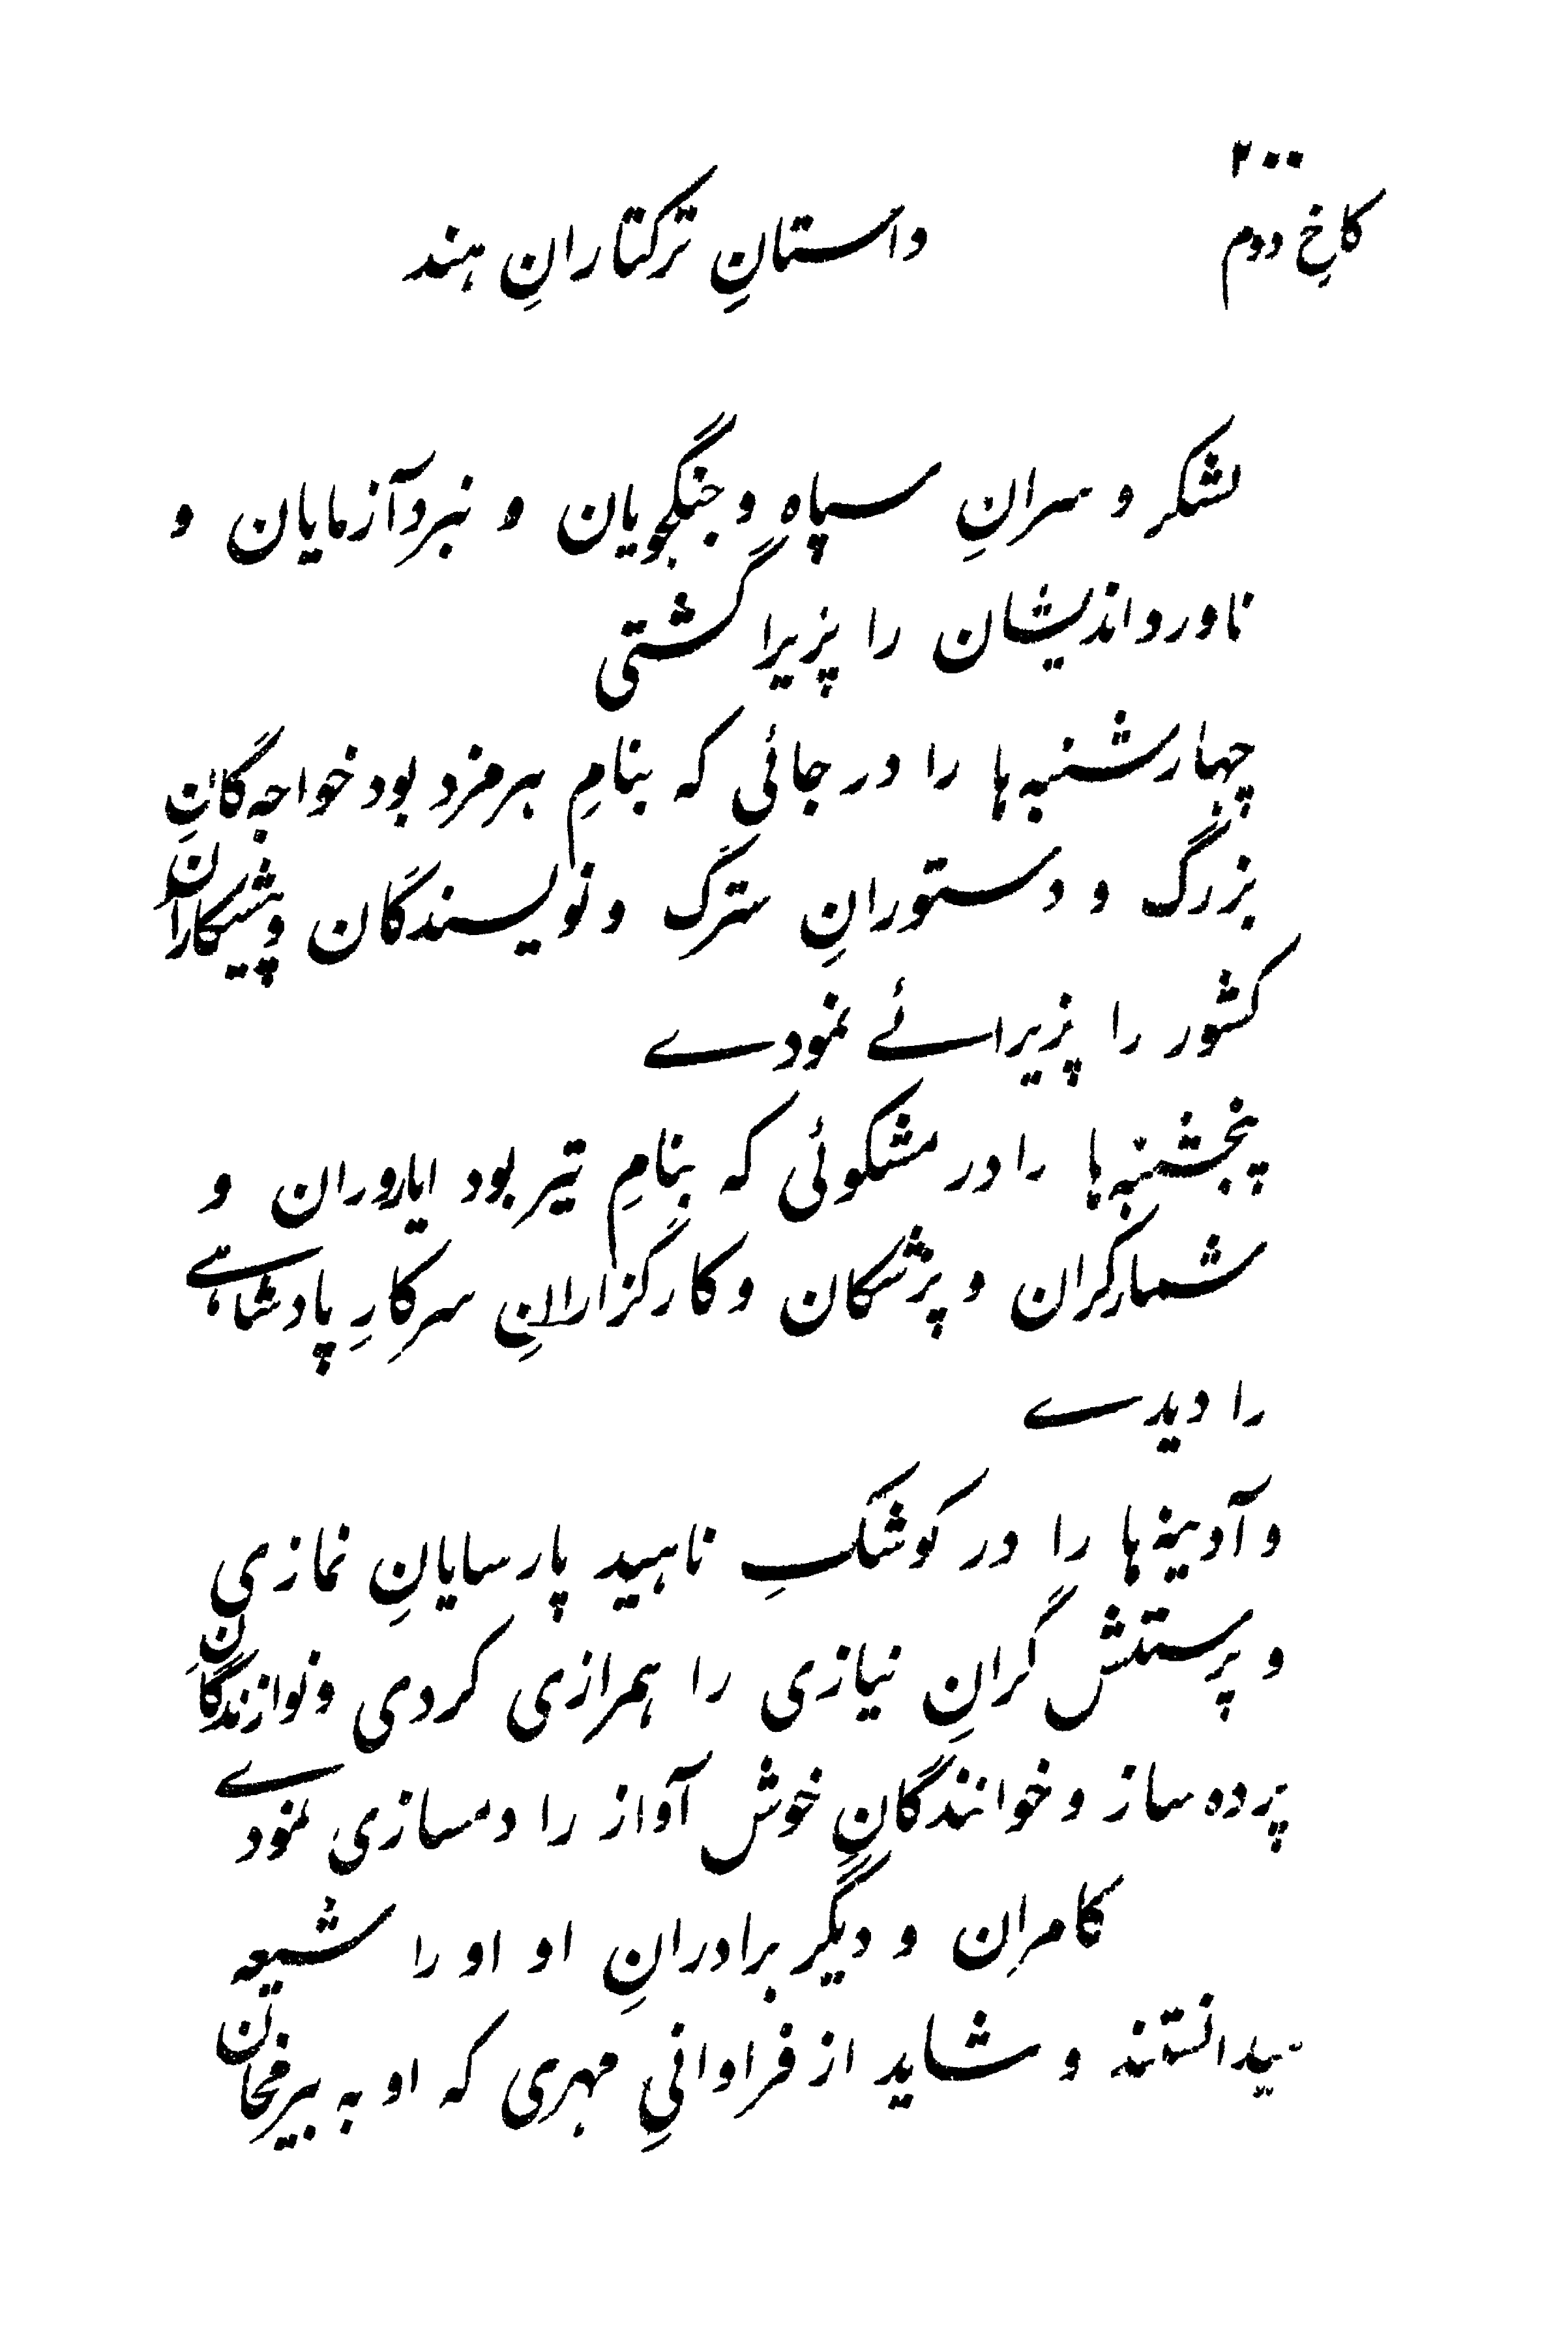 ۲۰۰
کاخِ دوم
داستانِ ترکتازانِ هند
لشکر و سرانِ سپاه و جنگجویان و نبردآزمایان و
ناورداندیشان را پزیرا گشتی
چهارشنبه‌ها را در جائی که بنامِ هرمزد بود خواجه‌گانِ
بزرگ و دستورانِ سترگ و نویسندگان و پیشکارانِ
کشور را پزیرائے نمودے
پنجشنبه‌ها را در مشکوئی که بنامِ تیر بود ایاروران و
شمارگران و پزشکان و کارگزارانِ سرکارِ پادشاهے
را دیدے
و آدینه‌ها را در کوشکِ ناهید پارسایانِ نمازی
و پرستش گرانِ نیازی را همرازی کردی و نوازندگانِ
پرده ساز و خوانندگانِ خوش آواز را دمسازی نمودے
کامران و دیگر برادرانِ او او را شیعه
میدانستند و شاید از فراوانیِ مهری که او به بیرمخان